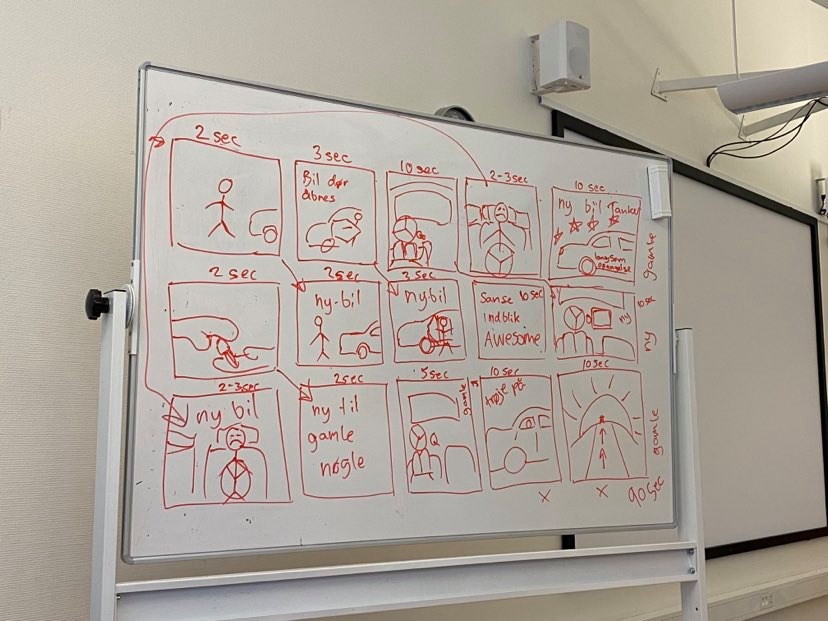 2 sec
3 sec
Bil dør
åbnes
10 sec
2-3 sec
10 sec
ny bil Tanker
langsom
gamle
2 sec
2 sec
ny-bil
3 sec
ny-bil
Sanse 10 sec
indblik
Awesome
10 sec
ny
ny
2-3 sec
ny bil
2 sec
ny til
gamle
nøgle
5 sec
gamle
10 sec
trøje på
10 sec
gamle
x
x
90 sec